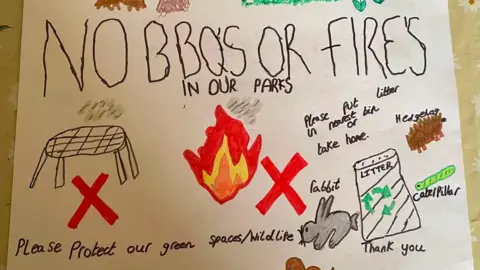 NO BBQ'S OR FIRE'S
IN OUR PARKS
Please put litter
in nearest bin
or
take home.
Hedgehog
LITTER
rabbit
caterpillar
Please Protect our green spaces/wildlife
Thank you